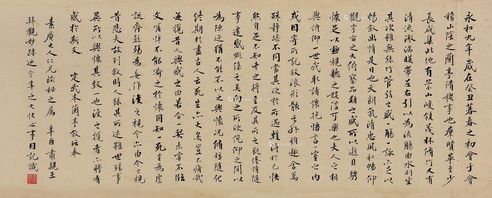 永和九年歲在癸丑暮春之初會于會
稽山陰之蘭亭脩稧事也群賢畢至少
長咸集此地有崇山峻領茂林脩竹又有
清流激湍暎帶左右引以為流觴曲水列坐
其次雖無絲竹管弦之盛一觴一詠亦足以
暢敘幽情是日也天朗氣清惠風和暢仰
觀宇宙之大俯察品類之盛所以遊目騁
懷足以極視聽之娛信可樂也夫人之相
與俯仰一世或取諸懷抱悟言一室之內
或因寄所託放浪形骸之外雖趣舍萬
殊靜躁不同當其欣於所遇暫得於己快
然自足不知老之將至及其所之既惓情隨
事遷感慨係之矣向之所欣俛仰之間以
為陳迹猶不能不以之興懷況脩短隨化
終期於盡古人云死生亦大矣豈不痛哉
每攬昔人興感之由若合一契未嘗不臨
文嗟悼不能喻之於懷固知一死生為虛
誕齊彭殤為妄作後之視今亦由今之視
昔悲夫故列敘時人錄其所述雖世殊事
異所以興懷其致一也後之攬者亦將有
感於斯文 定武本蘭亭敘
大人仁兄 之屬 肅親王